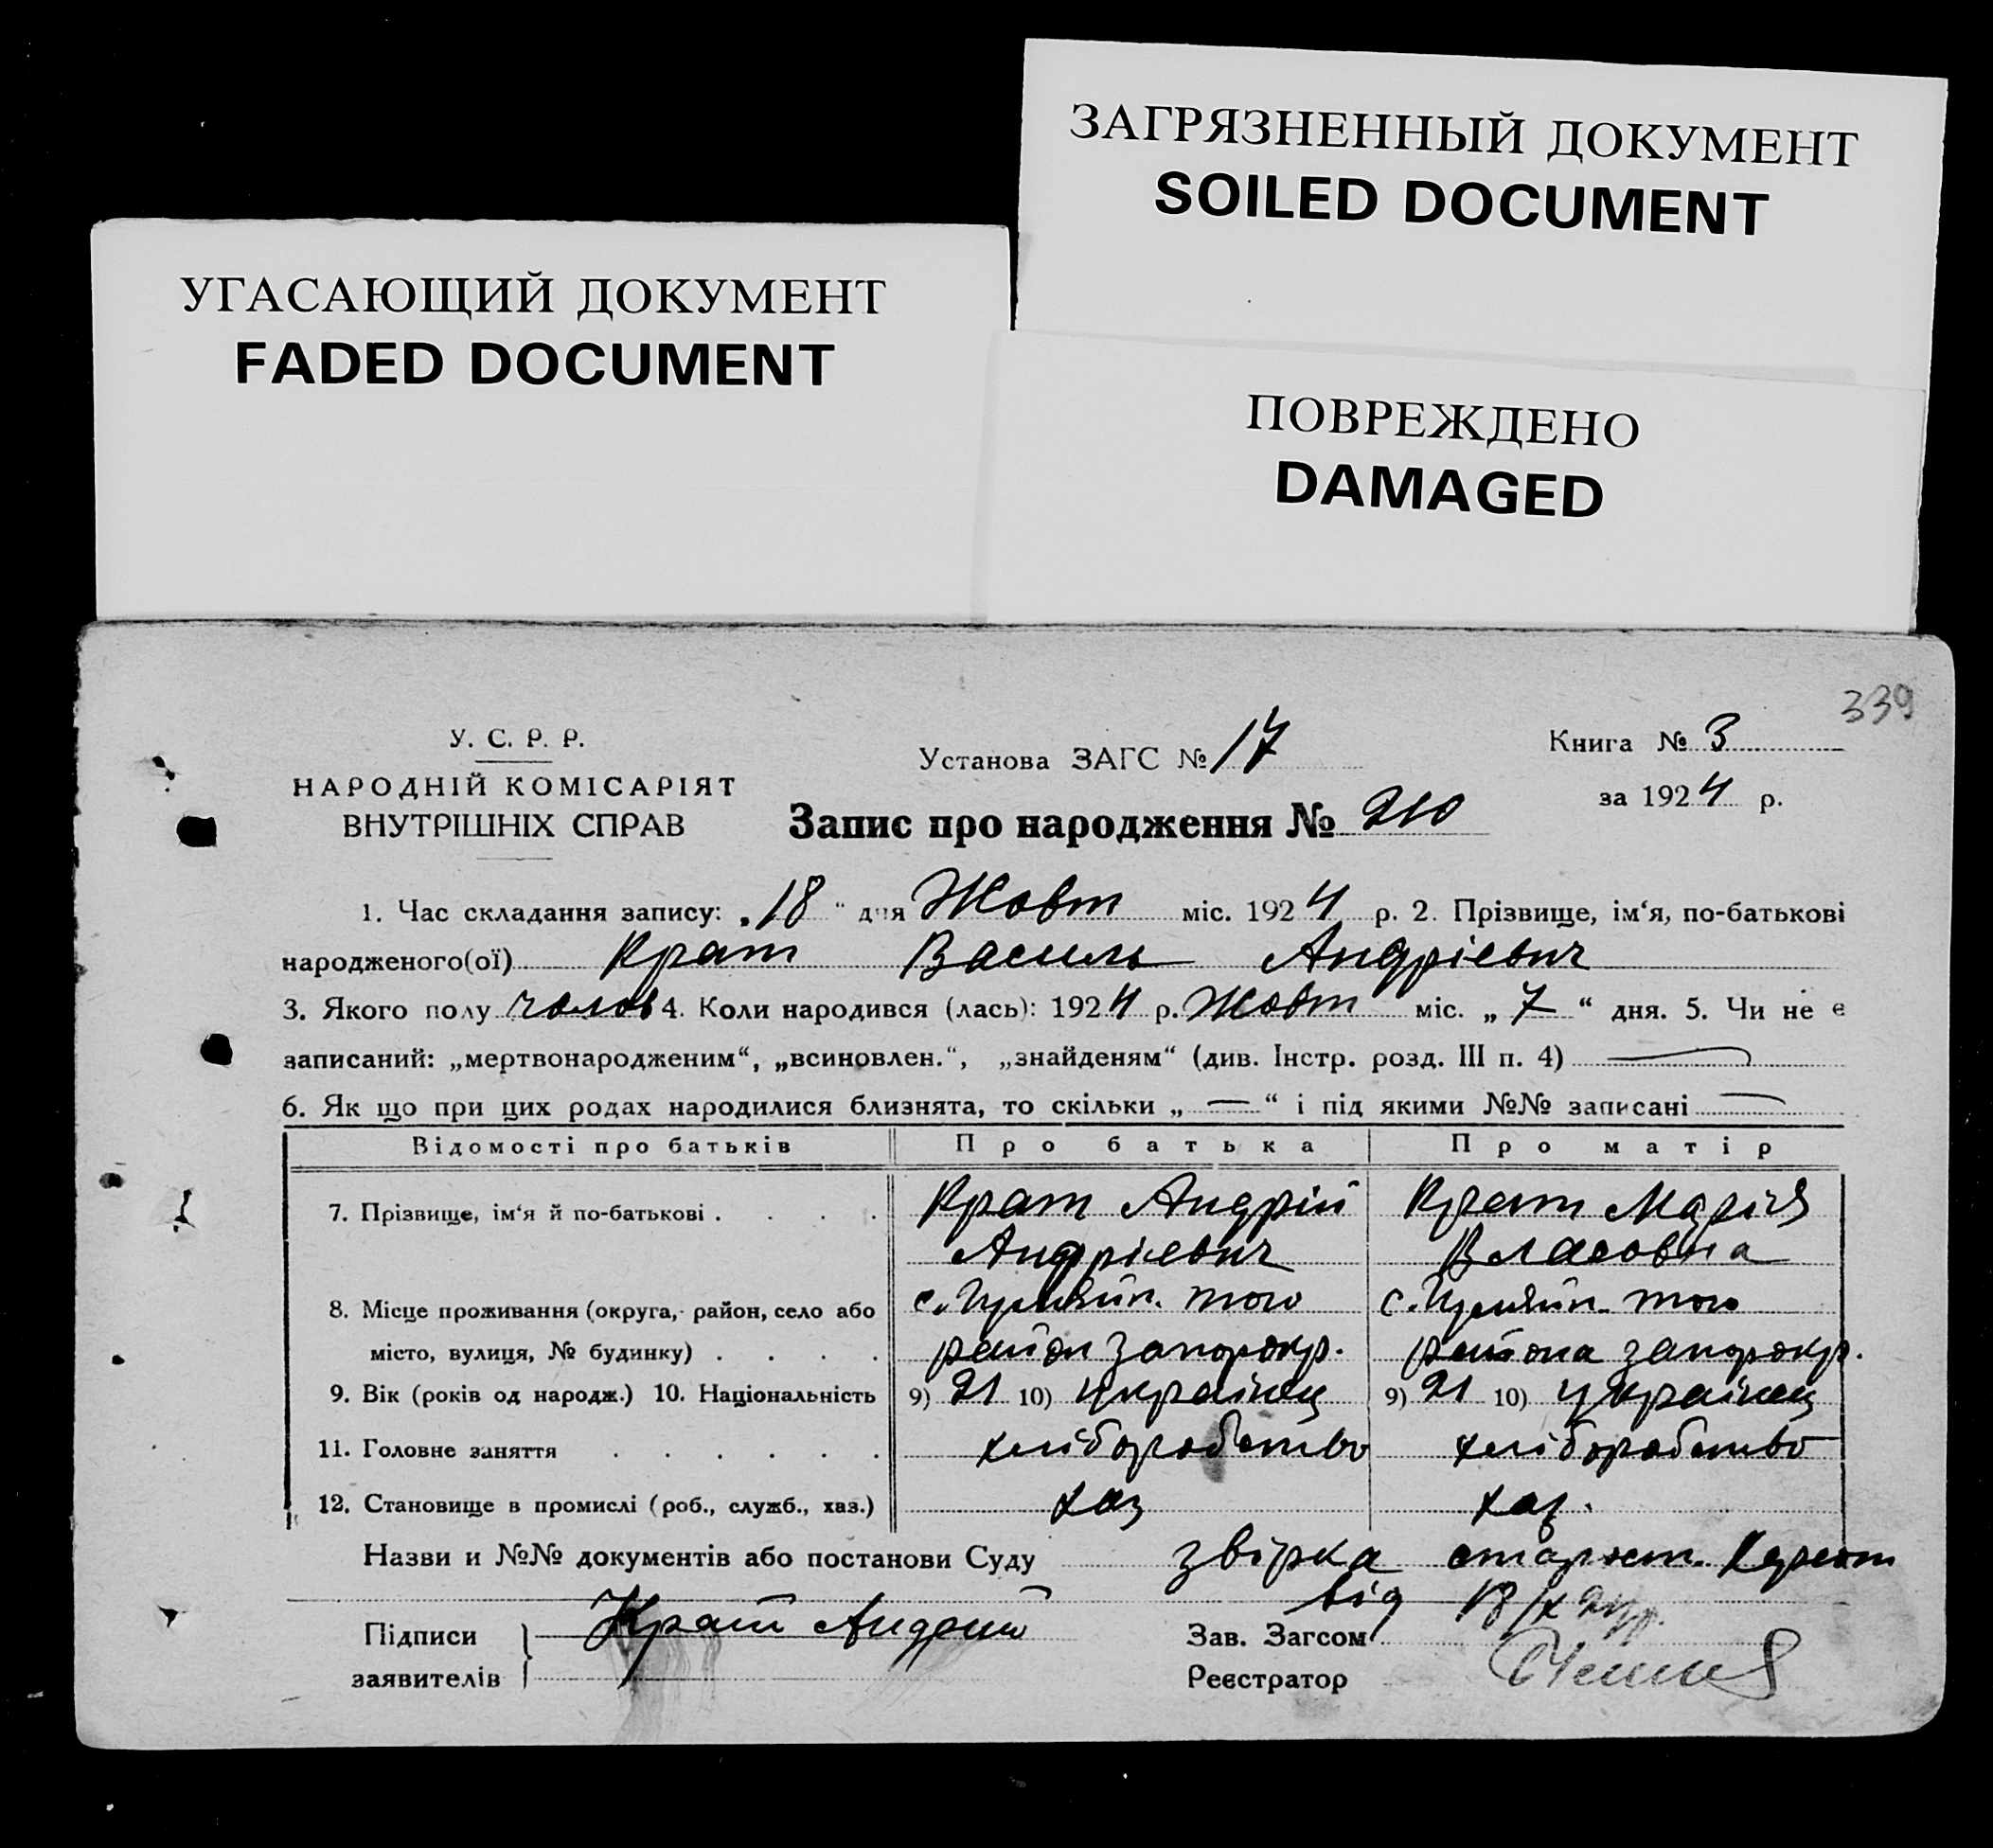 ЗАГРЯЗНЕННЫЙ ДОКУМЕНТ
SOILED DOCUMENT
УГАСАЮЩИЙ ДОКУМЕНТ
FADED DOCUMENT
ПОВРЕЖДЕНО
DAMAGED
339
У. С. Р. Р.
НАРОДНІЙ КОМІСАРІЯТ
ВНУТРІШНІХ СПРАВ
Установа ЗАГС № 17
Книга № 3
за 1924 р.
Запис про народження № 210
1. Час складання запису: „18“ дня Жовт міс. 1924 р. 2. Прізвище, ім‘я, по-батькові
народженого(ої) Крат Василь Андрієвич
3. Якого полу чолов 4. Коли народився (лась): 1924 р. Жовт міс. „7“ дня. 5. Чи не є
записаний: „мертвонародженим“, „всиновлен.“, „знайденям“ (див. Інстр. розд. III п. 4)
6. Як що при цих родах народилися близнята, то скільки „—“ і під якими №№ записані —
Відомості про батьків Про батька Про матір
7. Прізвище, ім‘я й по-батькові . . . . Крат Андрій Крат Марія
Андрієвич Власовна
8. Місце проживання (округа, район, село або с. того с. того
місто, вулиця, № будинку) . . . . район Запорокр. района Запорокр.
9. Вік (років од народж.) 10. Національність 9) 21 10) Українец 9) 21 10) Українец
11. Головне заняття . . . . . . хліборобство хліборобство
12. Становище в промислі (роб., служб., хаз.) хаз хаз.
Назви и №№ документів або постанови Суду звірка
від 18/X 24р.
Підписи Крат Андрей Зав. Загсом
заявителів Реєстратор